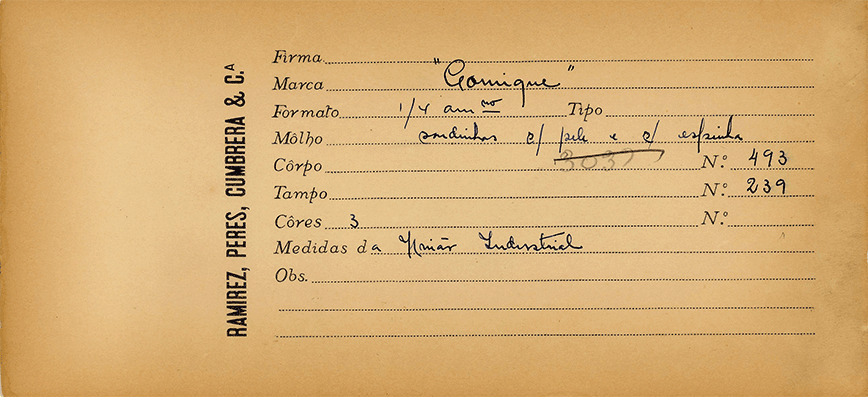 RAMIREZ, PERES, CUMBRERA & C.ᴬ
Firma
Marca "Comique"
Formato 1/4 am no Tipo
Môlho sardinhas c/ pele e c/ espinha
Côrpo 3037 N.º 493
Tampo N.º 239
Côres 3 N.º
Medidas da União Industrial
Obs.